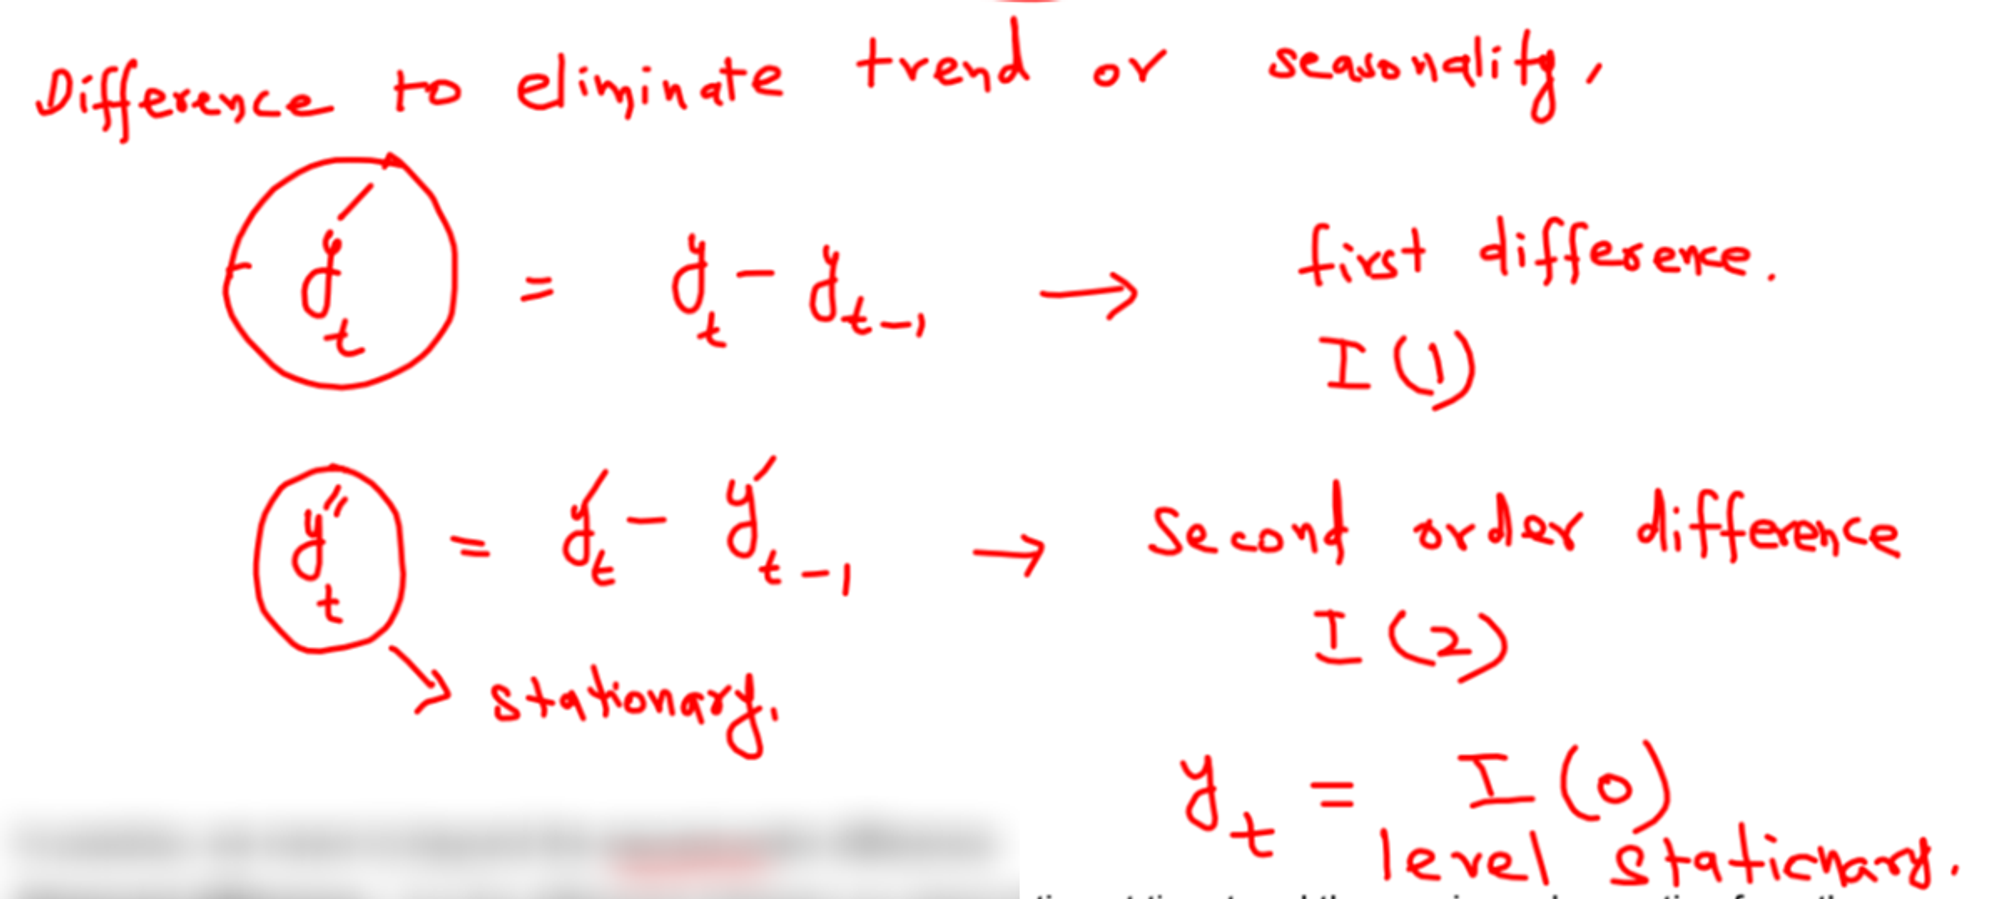 Difference to eliminate trend or seasonality,
y′t = yt − yt−1 → first difference.
I(1)
y″t = y′t − y′t−1 → Second order difference
I(2)
stationary.
yt = I(0)
level stationary.